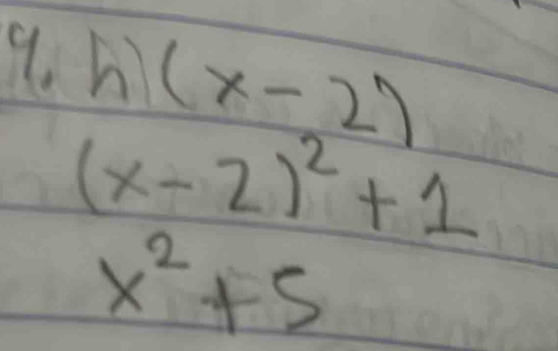 9. h) (x - 2)
(x - 2)² + 1
x² + 5